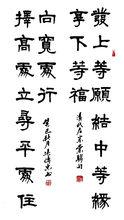 發上等願結中等緣
享下等福
清代左宗棠
擇高處立尋平處住
向寬處行
癸巳秋月